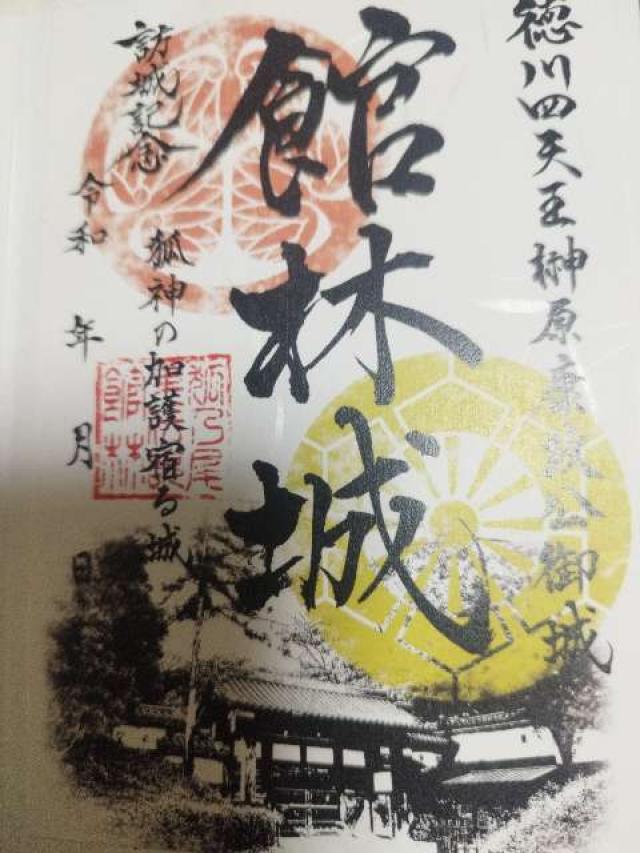 徳川四天王榊原康政公御城
館林城
狐神の加護宿る城
訪城記念
令和 年 月 日